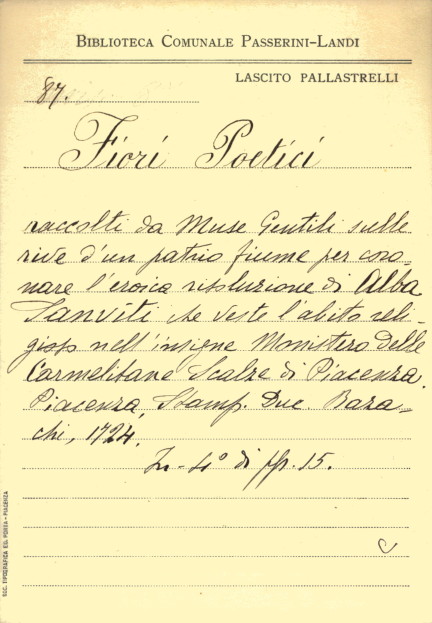 BIBLIOTECA COMUNALE PASSERINI-LANDI
LASCITO PALLASTRELLI
87.
Fiori Poetici
raccolti da Muse Gentili sulle
rive d'un patrio fiume per coro-
nare l'eroica risoluzione di Alba
Sanviti che veste l'abito reli-
gioso nell'insigne Monistero delle
Carmelitane Scalze di Piacenza.
Piacenza, Stamp. Duc. Baza-
chi, 1724.
In-4° di pp. 15.
SOC. TIPOGRAFICA ED. PORTA - PIACENZA